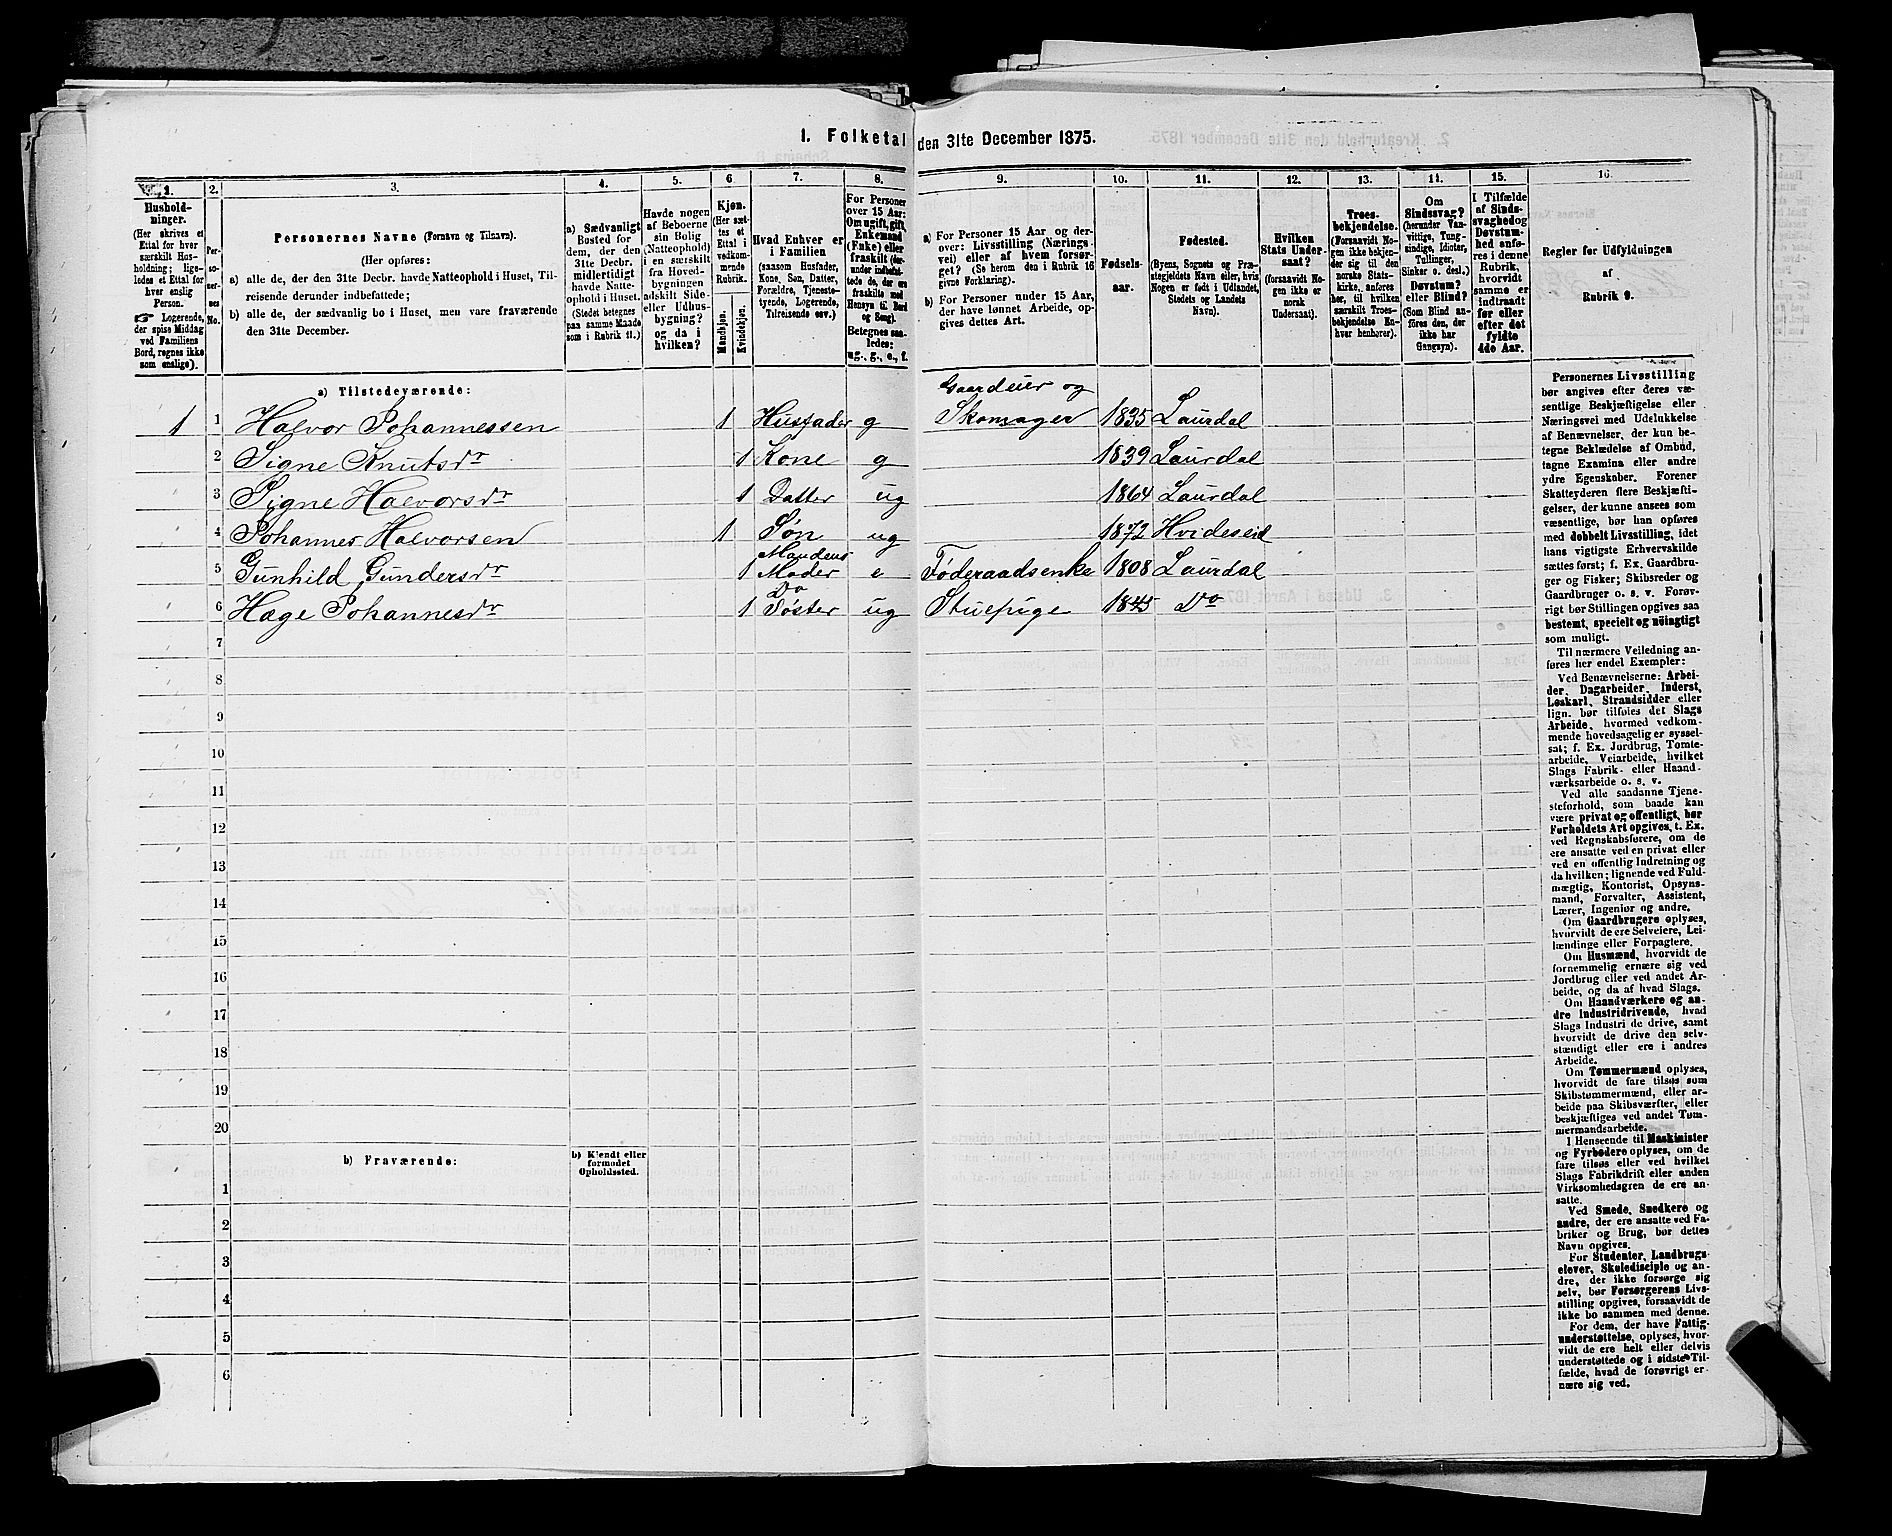 1. Folketal den 31te December 1875.
1. 2. 3. 4. 5. 6. 7. 8. 9. 10. 11. 12. 13. 14. 15. 16.
Hushold-
ninger.
(Her skrives et
Ettal for hver
særskilt Hus-
holdning; lige-
ledes et Ettal for
hver enslig
Person.
☞ Logerende,
der spise Middag
ved Familiens
Bord, regnes ikke
som enslige).
Per-
so-
ner-
nes
No.
Personernes Navne (Fornavn og Tilnavn).
(Her opføres:
a) alle de, der den 31te Decbr. havde Natteophold i Huset, Til-
reisende derunder indbefattede;
b) alle de, der sædvanlig bo i Huset, men vare fraværende
den 31te December.
a) Sædvanligt
Bosted for
dem, der den
31te Decbr.
midlertidigt
havde Natte-
ophold i Huset.
(Stedet betegnes
paa samme Maade
som i Rubrik 11.)
Havde nogen
af Beboerne
sin Bolig
(Natteophold)
i en særskilt
fra Hoved-
bygningen
adskilt Side-
eller Udhus-
bygning?
og da i
hvilken?
Kjøn.
(Her sæt-
tes et
Ettal i
vedkom-
mende
Rubrik.
Mandkjøn.
Kvindekjøn.
Hvad Enhver er
i Familien
(saasom Husfader,
Kone, Søn, Datter,
Forældre, Tjeneste-
tyende, Logerende,
Tilreisende osv.)
For Personer
over 15 Aar:
Om ugift, gift,
Enkemand
(Enke) eller
fraskilt (der-
under indbefat-
tede de, der ere
fraskilte med
Hensyn til Bord
og Seng).
Betegnes saa-
ledes:
ug., g., e., f.
a) For Personer 15 Aar og der-
over: Livsstilling (Nærings-
vei) eller af hvem forsør-
get? (Se herom den i Rubrik 16
givne Forklaring).
b) For Personer under 15 Aar,
der have lønnet Arbeide, op-
gives dettes Art.
Fødsels-
aar.
Fødested.
(Byens, Sognets og Præ-
stegjeldets Navn eller, hvis
Nogen er født i Udlandet,
Stedets og Landets
Navn).
Hvilken
Stats Under-
saat?
(forsaavidt No-
gen ikke er
norsk
Undersaat).
Troes-
bekjendelse.
(Forsaavidt No-
gen ikke bekjen-
der sig til den
norske Stats-
kirke, anføres
her, til hvilken
særskilt Troes-
bekjendelse En-
hver henhører).
Om
Sindssvag?
(herunder Van-
vittige, Tung-
sindige, Idioter,
Sinker o. desl.)
Døvstum?
eller Blind?
(Som Blind an-
føres den, der
ikke har
Gangsyn).
I Tilfælde
af Sinds-
svaghed og
Døvstum-
hed anfø-
res i denne
Rubrik,
hvorvidt
samme er
indtraadt
før eller
efter det
fyldte
4de Aar.
Regler for Udfyldningen
af
Rubrik 9.
a) Tilstedeværende:
Gaardeier og
1 1 Halvor Johannessen 1 Husfader g Skomager 1835 Laurdal
2 Signe Knutsdr 1 Kone g 1839 Laurdal
3 Signe Halvorsdr 1 Datter ug 1864 Laurdal
4 Johannes Halvorsen 1 Søn ug 1872 Hvideseid
5 Gunhild Gundersdr 1 Mandens Moder e Føderaadsenke 1808 Laurdal
6 Hage Johannesdr 1 Do Søster ug Stuepige 1845 Do
7
8
9
10
11
12
13
14
15
16
17
18
19
20
b) Fraværende:
b) Kjendt eller
formodet
Opholdssted.
1
2
3
4
5
6
Personernes Livsstilling
bør angives efter deres væ-
sentlige Beskjæftigelse eller
Næringsvei med Udelukkelse
af Benævnelser, der kun be-
tegne Beklædelse af Ombud,
tagne Examina eller andre
ydre Egenskaber. Forener
Skatteyderen flere Beskjæfti-
gelser, der kunne ansees som
væsentlige, bør han opføres
med dobbelt Livsstilling, idet
hans vigtigste Erhvervskilde
sættes først; f. Ex. Gaardbru-
ger og Fisker; Skibsreder og
Gaardbruger o. s. v. Forøv-
rigt bør Stillingen opgives saa
bestemt, specielt og nøiagtigt
som muligt.
Til nærmere Veiledning an-
føres her endel Exempler:
Ved Benævnelserne: Arbei-
der, Dagarbeider, Inderst,
Løskarl, Strandsidder eller
lign. bør tilføies det Slags
Arbeide, hvormed vedkom-
mende hovedsagelig er syssel-
sat; f. Ex. Jordbrug, Tomte-
arbeide, Veiarbeide, hvilket
Slags Fabrik- eller Haand-
værksarbeide o. s. v.
Ved alle saadanne Tjene-
steforhold, som baade kan
være privat og offentligt, bør
Forholdets Art opgives, t. Ex.
ved Regnskabsførere, om de
ere ansatte ved en privat eller
ved en offentlig Indretning og
da hvilken; lignende ved Fuld-
mægtig, Kontorist, Opsyns-
mand, Forvalter, Assistent,
Lærer, Ingeniør og andre.
Om Gaardbrugere oplyses,
hvorvidt de ere Selveiere, Lei-
lændinge eller Forpagtere.
Om Husmænd, hvorvidt de
fornemmelig ernære sig ved
Jordbrug eller ved andet Ar-
beide, og da af hvad Slags.
Om Haandværkere og an-
dre Industridrivende, hvad
Slags Industri de drive, samt
hvorvidt de drive den selv-
stændigt eller ere i andres
Arbeide.
Om Tømmermænd oplyses,
hvorvidt de fare tilsøs som
Skibstømmermænd, eller ar-
beide paa Skibsværfter, eller
beskjæftiges ved andet Tøm-
mermandsarbeide.
I Henseende til Maskinister
og Fyrbødere oplyses, om de
fare tilsøs eller ved hvilket
Slags Fabrikdrift eller anden
Virksomhedsgren de ere an-
satte.
Ved Smede, Snedkere og
andre, der ere ansatte ved Fa-
briker og Brug, bør dettes
Navn opgives.
For Studenter, Landbrugs-
elever, Skoledisciple og an-
dre, der ikke forsørge sig
selv, bør Forsørgerens Livs-
stilling opgives, forsaavidt de
ikke bo sammen med denne.
For dem, der have Fattig-
understøttelse, oplyses, hvor-
vidt de ere helt eller delvis
understøttede og i sidste Til-
fælde, hvad de forøvrigt er-
nære sig ved.